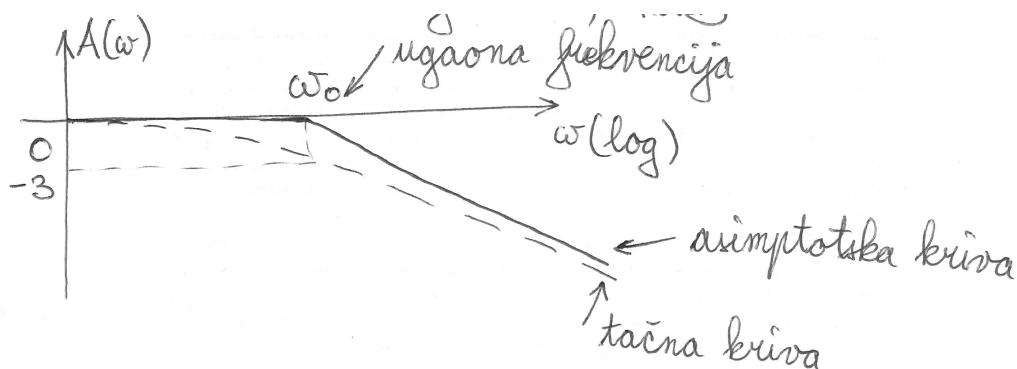 A(ω)
ugaona frekvencija
ω₀
ω(log)
0
-3
asimptotska kriva
tačna kriva